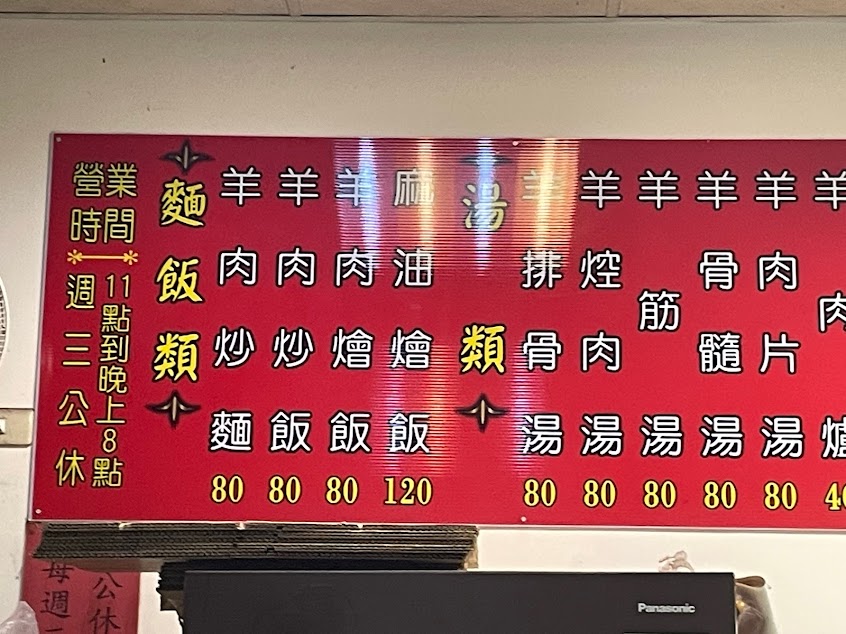 營業時間
11點到晚上8點
週三公休
麵飯類
羊肉炒麵 80
羊肉炒飯 80
羊肉燴飯 80
麻油燴飯 120
湯類
羊排骨湯 80
羊焢肉湯 80
羊筋湯 80
羊骨髓湯 80
羊肉片湯 80
羊肉爐
每週
公休
Panasonic